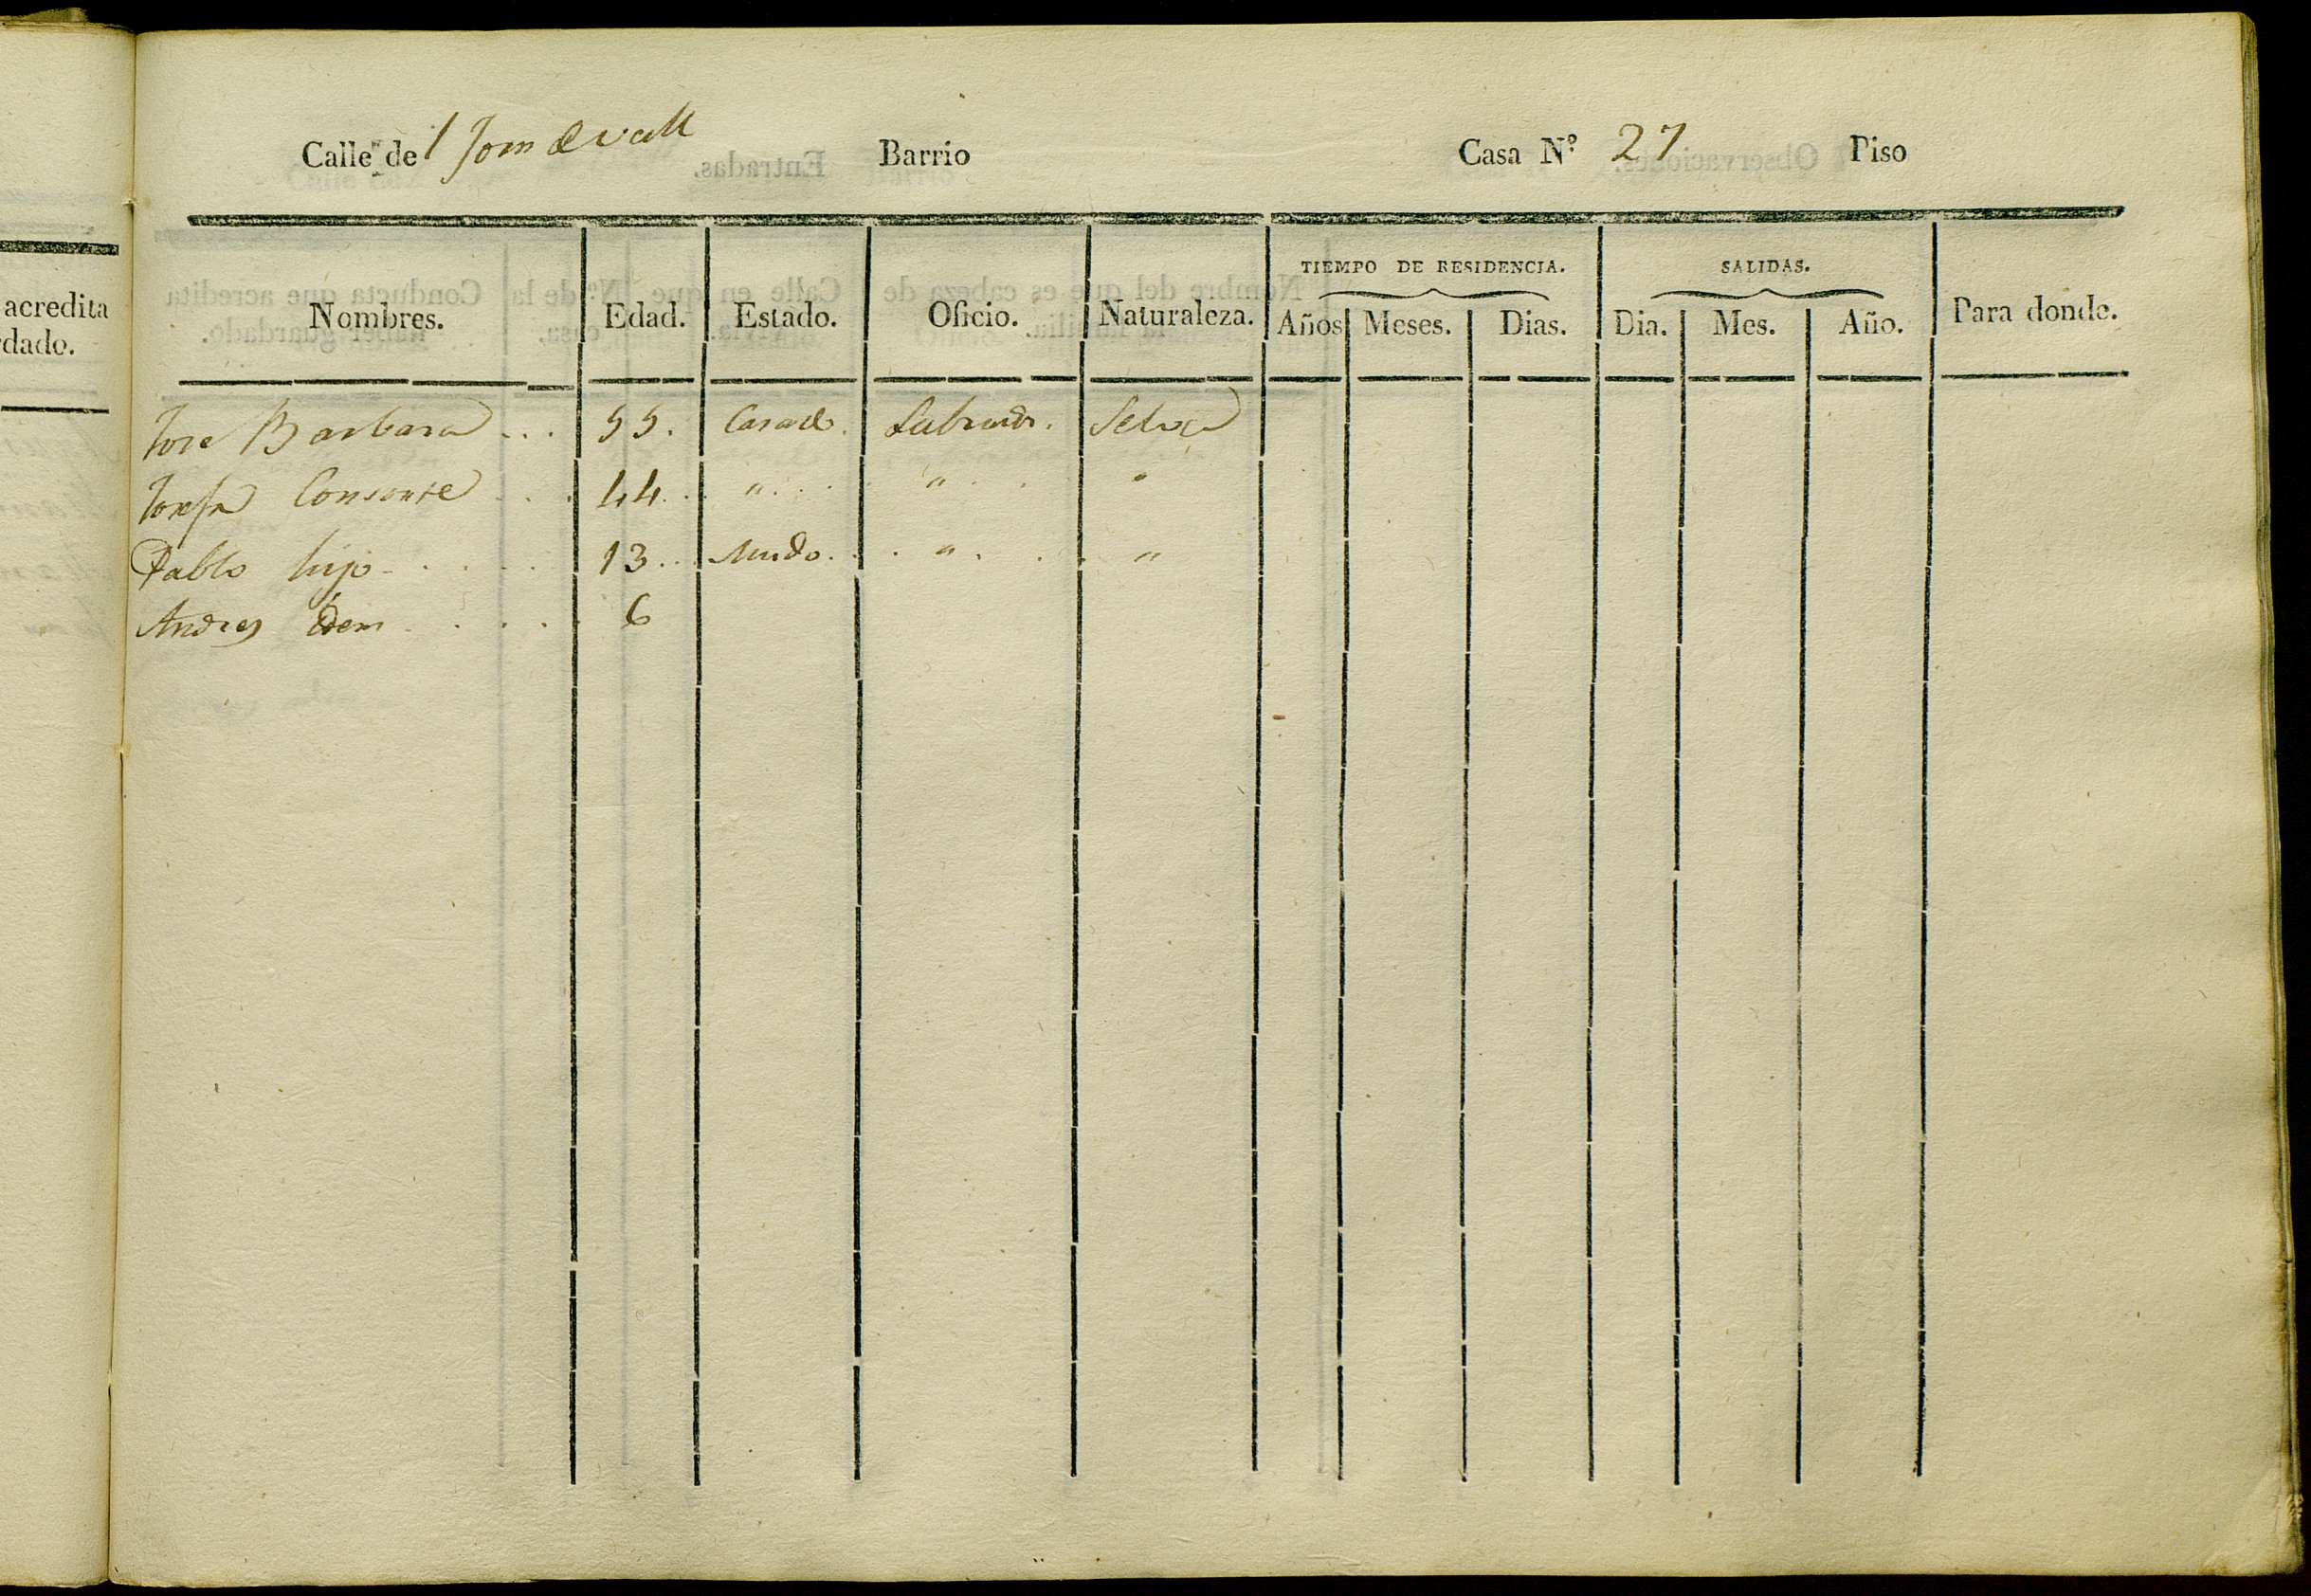 Calle de l fom de vall Barrio Casa Nº 27 Piso
TIEMPO DE RESIDENCIA. SALIDAS.
acredita
dado.
Nombres. Edad. Estado. Oficio. Naturaleza. Años Meses. Dias. Dia. Mes. Año. Para donde.
Jose Barbara ... 55. Casado. Labrador. Selva
Josefa Consorte ... 44 .. " . . " . . "
Pablo hijo ..... 13 ... Mudo . . . " . . . "
Andres idem ..... 6